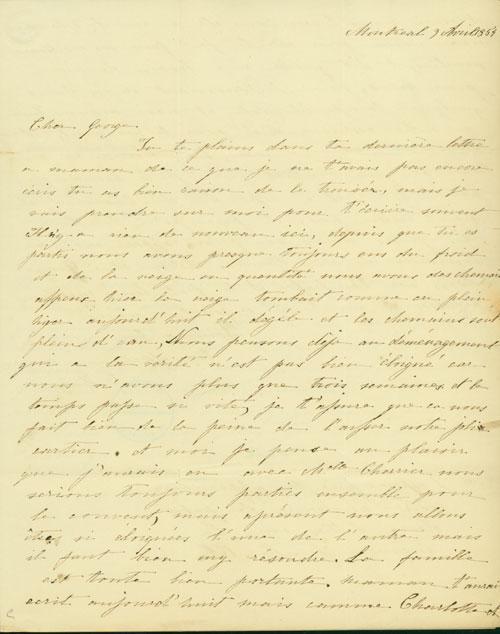 Montreal 9 Avril
Cher George
Tu te plains dans ta dernière lettre
a maman de ce que je ne t'avais pas encore
écris tu as bien raison de le trouver, mais je
vais prendre sur moi pour t'écrire souvent
Il n'y a rien de nouveau ici, depuis que tu es
parti nous avons presque toujours eus du froid
et de la neige en quantité nous avons des chemins
affreux hier la neige tombait comme en plein
hiver aujourd'huit il dégéle et les chemains sont
pleins d'eau, Nous pensons déja au déménagement
qui a la vérité n'est pas bien éloigné car
nous n'avons plus que trois semaines et le
temps passe si vite, je t'assure que ca nous
fait bien de la peine de laisser notre
cartier. et moi je pense au plaisir
que j'aurais eu avec Melle Charrier nous
serions toujours parties ensemble pour
le couvent, mais aprésent nous allons
être si éloignées l'une de l'autre mais
il faut bien my résoudre. La famille
est toute bien portante. maman t'aurait
ecrit aujourd'huit mais comme Charlotte et